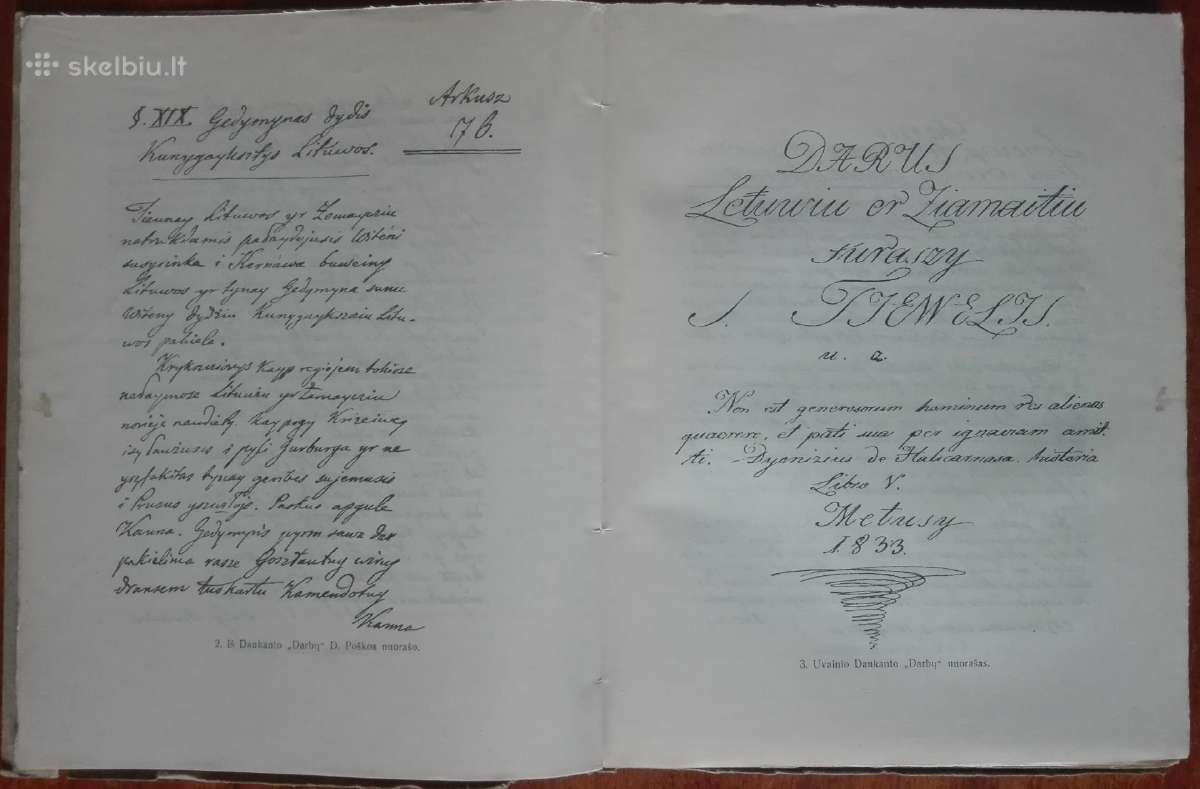 skelbiu.lt
§. XIX. Gedymynas dydis
Kunygayksztys Litúwos.
Arkusz
17 b.
Tieunay Lituwos yr Żemaycziu
natrukdamis padaydyjusis Witeni
susyrinka i Kernáwa buweiny
Lituwos yr tynay Gedymyna sunu
Witeny dydziu Kunygaykszciu Litu-
wos pakiele.
Krykowionys kayp regiejem tokiose
nedaymose Lituwiu yr Żamayciu
norieje naudiaty, kay pogy
i pyli Jurburga yr ne
tynay genties sujemusis
i Prusus Paskuo apgule
Kauna. Gedymynis pyrm sawa
pakielima rasze Gosztautuy winy
dransem tuskartu Kamendotuy
Kauna
2. Iš Daukanto „Darbų“ D. Poškos nuorašo.
DARUS
Letuwiu er Ziamaitiu
kuraszy
J. TJEWELIS.
u. a.
Non est generosorum hominum res alienas
quaerere, et pati sua per ignaviam amit-
ti. Dyonizius de Halicarnasa. historia
Libro V.
Metusy
1833.
3. Uvainio Daukanto „Darbų“ nuorašas.